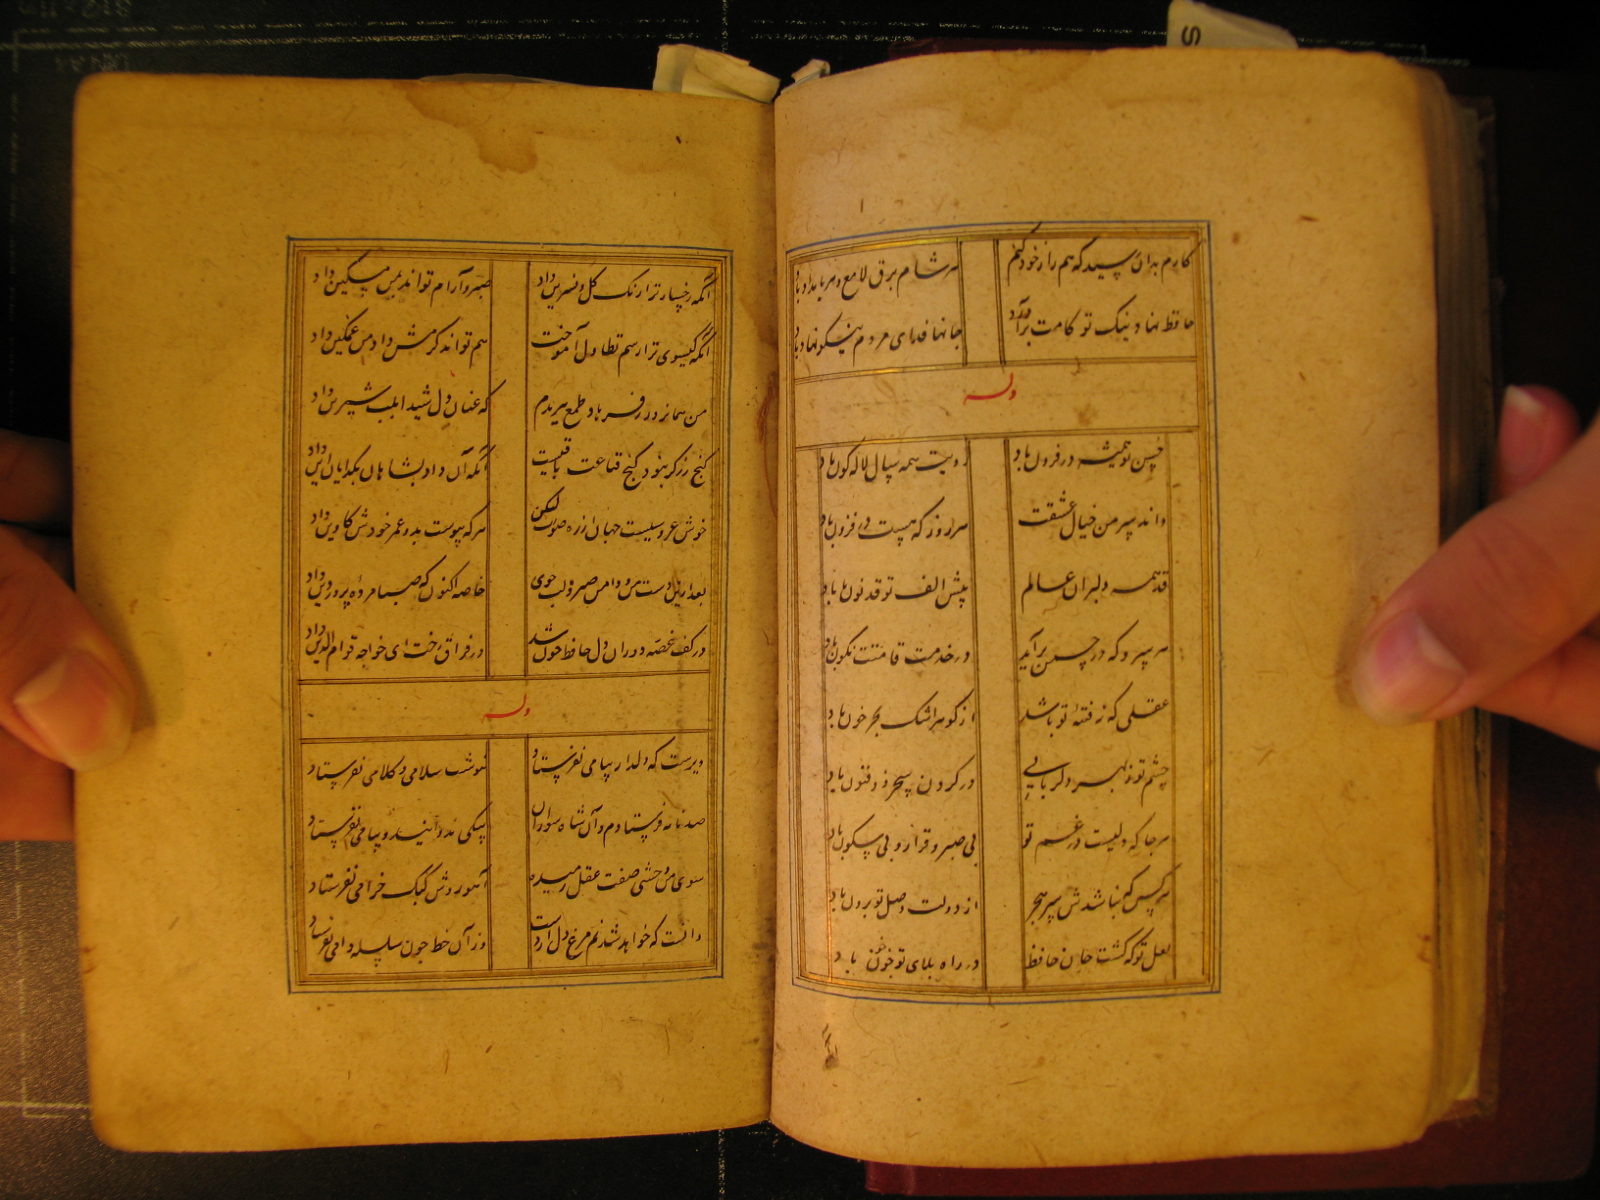 کارم بدان رسید که هم راز خود کنم هر شام برق لامع و هر بامداد باد
حافظ نهاد نیک تو کامت برآورد جانها فدای مردم نیکو نهاد باد
وله
حسن تو همیشه در فزون باد رویت همه سال لاله کون باد
واندر سر من خیال عشقت هر روز که هست در فزون باد
قد همه دلبران عالم پیش الف تو قد نون باد
هر سرو که در چمن برآید در خدمت قامتت نکون باد
عقلی که ز فتنه تو باشد از کوهر اشک بحر خون باد
چشم تو ز بهر دلربایی در کردن سحر ذو فنون باد
هر جا که دلیست در غم تو بی صبر و قرار و بی سکون باد
هر کس که نباشدش سر هجر از دولت وصل تو برون باد
لعل تو که کشت جان حافظ در راه بلای تو خون باد
آنکه رخسار ترا رنک کل و نسرین داد صبر و آرام تواند بمن مسکین داد
آنکه کیسوی ترا رسم تطاول آموخت هم تواند کرمش داد من غمکین داد
من همانروز ز فرهاد طمع ببریدم که عنان دل شیدا بلب شیرین داد
کنج زر کر نبود کنج قناعت باقیست آنکه آن داد بشاهان بکدایان این داد
خوش عروسیست جهان از ره صورت لیکن هر که پیوست بدو عمر خودش کاوین داد
بعد ازین دست من و دامن سرو و لب جوی خاصه اکنون که صبا مژده پروردین داد
در کف غصه دوران دل حافظ خون شد در فراق رخت ای خواجه قوام الدین داد
وله
دیرست که دلدار پیامی نفرستاد ننوشت سلامی و کلامی نفرستاد
صد نامه فرستادم و آن شاه سواران پیکی ندوانید و پیامی نفرستاد
سوی من وحشی صفت عقل رمیده آهو روش کبک خرامی نفرستاد
دانست که خواهد شدنم مرغ دل از دست وز آن خط چون سلسله دامی نفرستاد